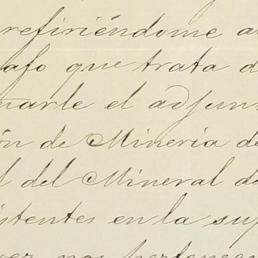 refiriéndome a
afo que trata d
narle el adjun
ón de Minería de
l del Mineral de
istentes en la sup
nos pertenec